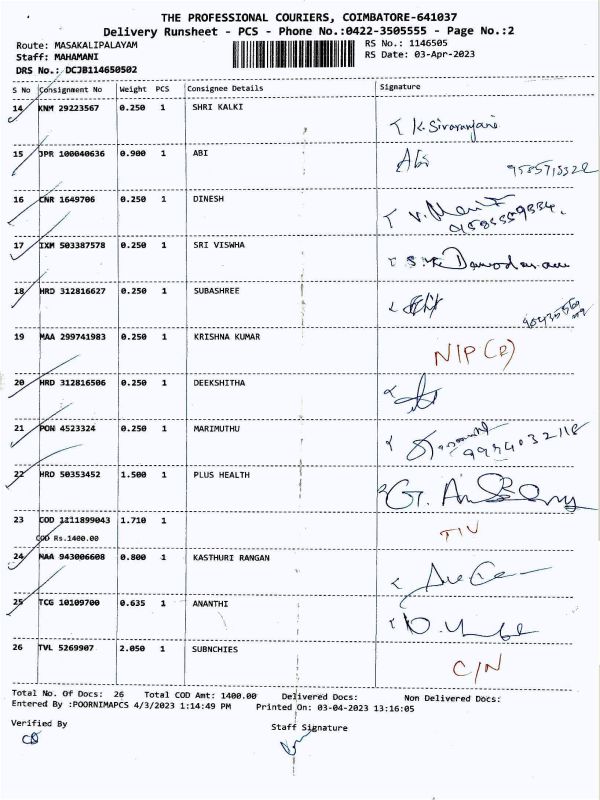 THE PROFESSIONAL COURIERS, COIMBATORE-641037
Delivery Runsheet - PCS - Phone No.:0422-3505555 - Page No.:2
Route: MASAKALIPALAYAM RS No.: 1146505
Staff: MAHAMANI RS Date: 03-Apr-2023
DRS No.: DCJB114650502
S No Consignment No Weight PCS Consignee Details Signature
14 KNM 29223567 0.250 1 SHRI KALKI
K. Sivaranjani
15 JPR 100040636 0.900 1 ABI Abi
16 CNR 1649706 0.250 1 DINESH
17 IXM 503387578 0.250 1 SRI VISWHA
18 HRD 312816627 0.250 1 SUBASHREE
19 MAA 299741983 0.250 1 KRISHNA KUMAR
NIP (R)
20 HRD 312816506 0.250 1 DEEKSHITHA
21 PON 4523324 0.250 1 MARIMUTHU
9994032118
22 HRD 50353452 1.500 1 PLUS HEALTH
23 COD 1211899043 1.710 1
COD Rs.1400.00 TIV
24 MAA 943006608 0.800 1 KASTHURI RANGAN
25 TCG 10109700 0.635 1 ANANTHI
26 TVL 5269907 2.050 1 SUBNCHIES
C/N
Total No. Of Docs: 26 Total COD Amt: 1400.00 Delivered Docs: Non Delivered Docs:
Entered By :POORNIMAPCS 4/3/2023 1:14:49 PM Printed On: 03-04-2023 13:16:05
Verified By Staff Signature